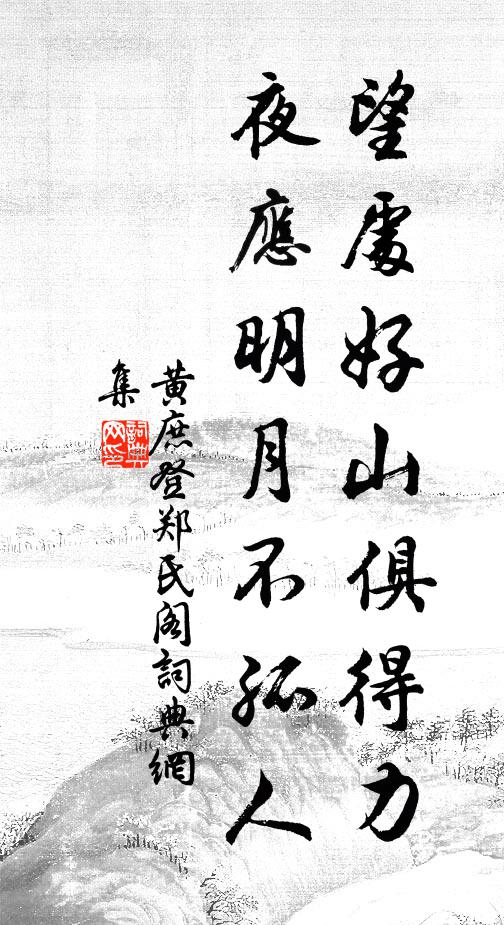 望處好山俱得力
夜應明月不孤人
黃庶登郑氏阁詞典網
集